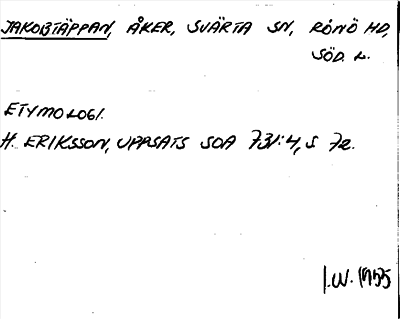 JAKOBTÄPPAN, ÅKER, SVÄRTA SN, RÖNÖ HD,
SÖD. L.
ETYMOLOGI.
H. ERIKSSON, UPPSATS SOA 731:4, S 72.
I.W. 1955